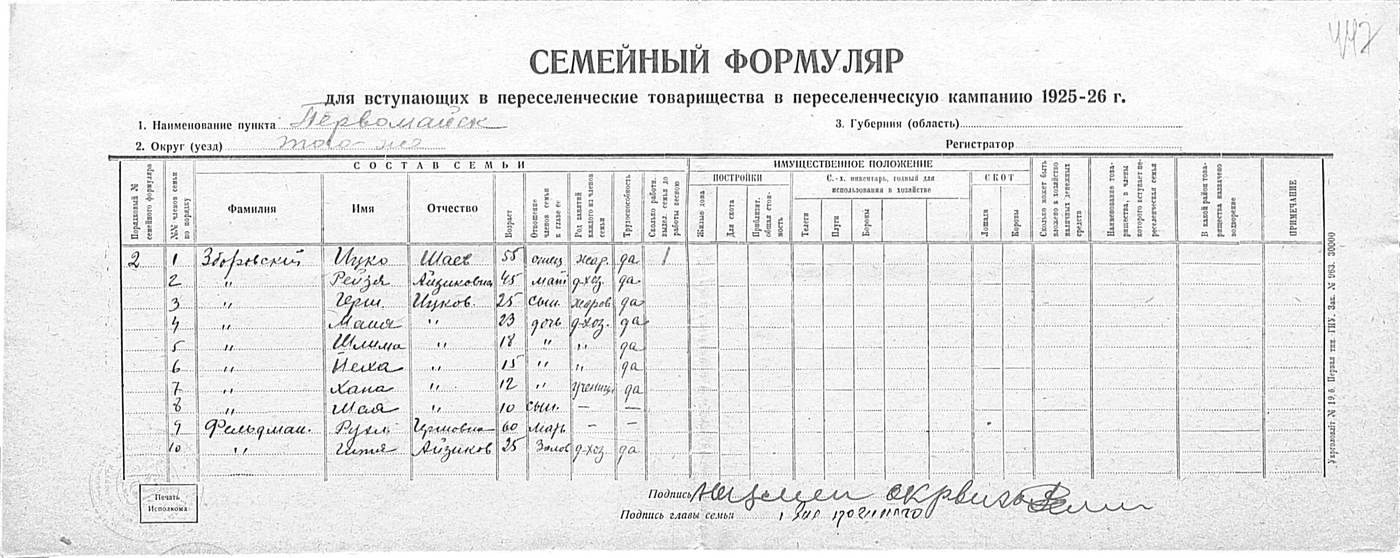 442
СЕМЕЙНЫЙ ФОРМУЛЯР
для вступающих в переселенческие товарищества в переселенческую кампанию 1925-26 г.
1. Наименование пункта Первомайск 3. Губерния (область)
2. Округ (уезд) того-же Регистратор
Порядковый № семейного формуляра
СОСТАВ СЕМЬИ
№№ членов семьи по порядку
Фамилия
Имя
Отчество
Возраст
Отношение членов семьи к главе ее
Род занятий каждого из членов семьи
Трудоспособность
Сколько работн. выдел. семья до работы весною
ИМУЩЕСТВЕННОЕ ПОЛОЖЕНИЕ
ПОСТРОЙКИ
Жилые дома
Для скота
Приблизит. общая стоимость
С.-х. инвентарь, годный для использования в хозяйстве
Телеги
Плуги
Бороны
СКОТ
Лошади
Коровы
Сколько может быть вложено в хозяйство наличных денежных средств
Наименование товарищества, в члены которого вступает переселенческая семья
В какой район товарищества назначено водворение
ПРИМЕЧАНИЕ
2 1 Зборовский Ицко Шаев 55 отец да 1
2 " Рейзя Айзиковна 45 мать д-хоз. да
3 " Герш Ицков. 25 сын. да
4 " Маня " 23 дочь д-хоз. да
5 " Шлима " 18 " " да
6 " " 15 " " да
7 " Хана " 12 " учениц. да
8 " Шая " 10 сын. — —
9 Фельдман. Рухл Гершовна 60 — —
10 " Гитя Айзиков 25 д-хоз да
Печать Исполкома
Подпись
Подпись главы семьи
Укрголовліт № 19,б. Первая тип. ГИУ. Зак. № 963. 30000